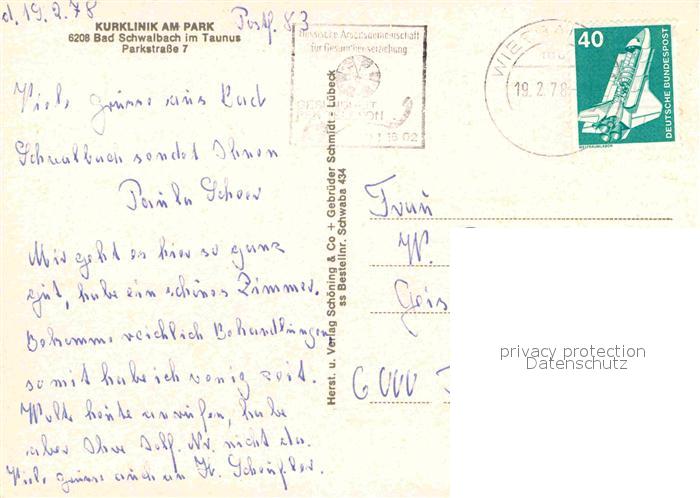 d, 19.2.78
Postf. 83
KURKLINIK AM PARK
6208 Bad Schwalbach im Taunus
Parkstraße 7
Viele grüsse aus Bad
Schwalbach sendet Ihnen
Paula
Mir geht es hier so ganz
gut, habe ein schönes Zimmer.
Bekomme reichlich Behandlungen
somit habe ich wenig Zeit.
Wollte heute anrufen, habe
aber Ihre Telf. Nr. nicht da.
Viele grüsse auch an H.
Herst. u. Verlag Schöning & Co + Gebrüder Schmidt - Lübeck
ss Bestellnr. Schwaba 434
Hessische Arbeitsgemeinschaft
für Gesundheitserziehung
19.2.78
40
DEUTSCHE BUNDESPOST
WELTRAUMLABOR
Frau
W.
6000
privacy protection
Datenschutz